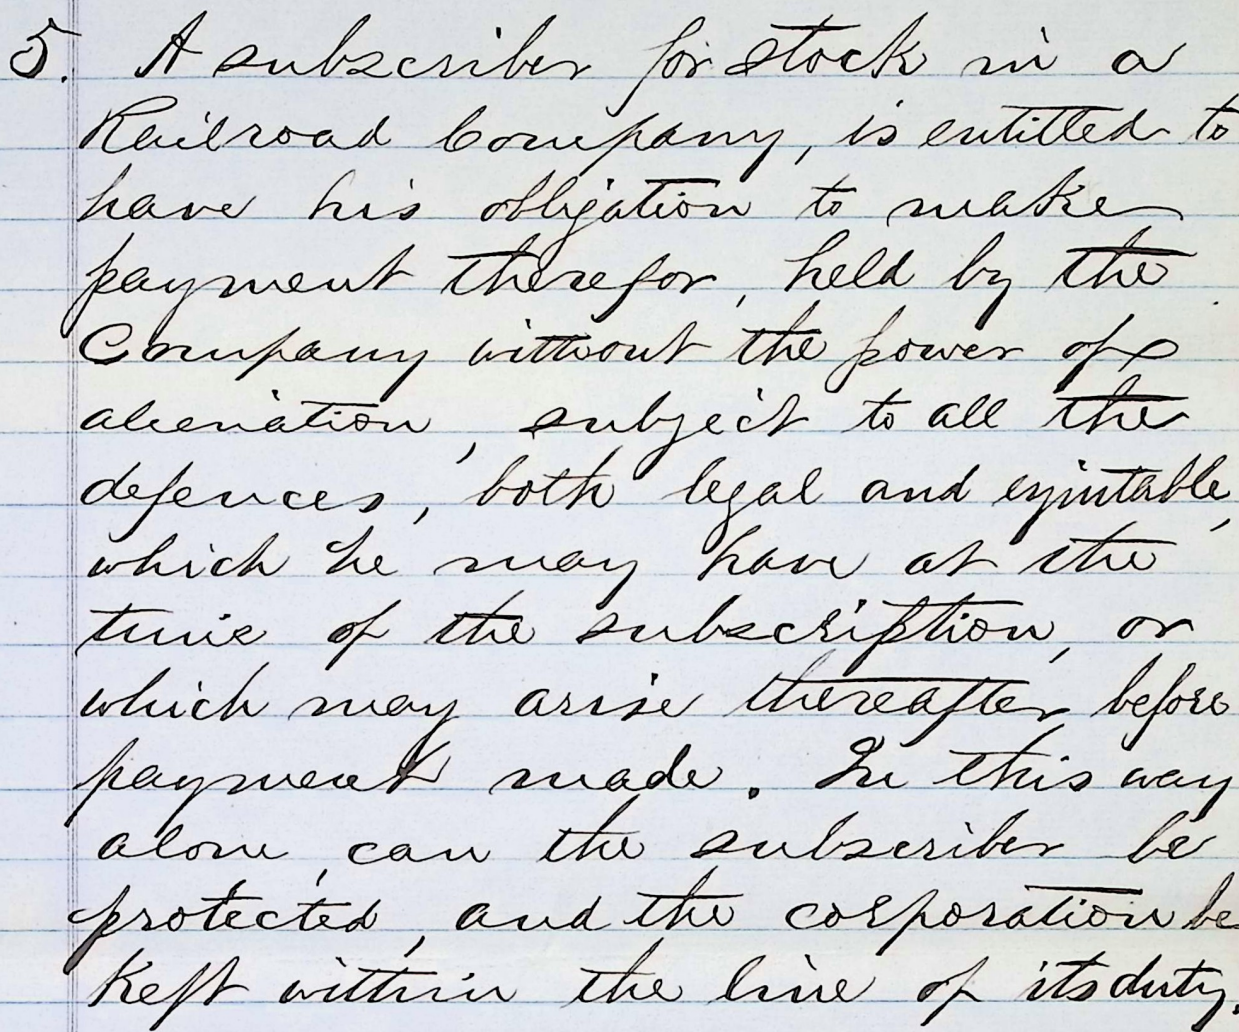 5. A subscriber for stock in a
Railroad Company, is entitled to
have his obligation to make
payment therefor, held by the
Company without the power of
alienation, subject to all the
defences, both legal and equitable,
which he may have at the
time of the subscription, or
which may arise thereafter before
payment made. In this way
alone, can the subscriber be
protected, and the corporation be
kept within the line of its duty.